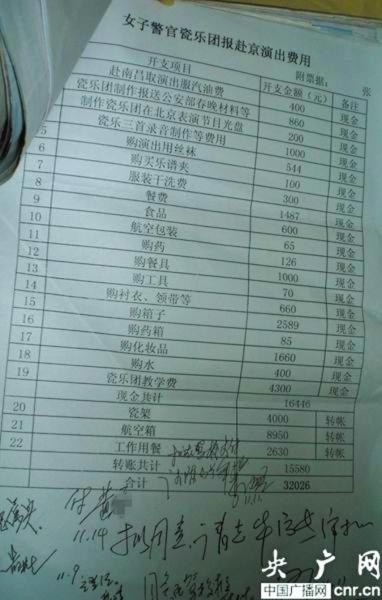 女子警官瓷乐团报赴京演出费用
附票据： 张
开支项目 开支金额（元） 备注
赴南昌取演出服汽油费 400 现金
瓷乐团制作报送公安部春晚材料等 860 现金
制作瓷乐团在北京表演节目光盘 200 现金
瓷乐三首录音制作等费用 1000 现金
5 购演出用丝袜 544 现金
6 购买乐谱夹 100 现金
7 服装干洗费 300 现金
8 餐费 1487 现金
9 食品 600 现金
10 航空包装 65 现金
11 购药 126 现金
12 购餐具 1000 现金
13 购工具 70 现金
14 购衬衣、领带等 660 现金
15 购箱子 2589 现金
16 购药箱 85 现金
17 购化妆品 1660 现金
18 购水 400 现金
瓷乐团教学费 4300 现金
现金共计 16446
20 瓷架 4000 转帐
21 航空箱 8950 转帐
22 工作用餐 2630 转帐
转账共计 15580
合计 32026
11.14
11.9
央广网
中国广播网 cnr.cn